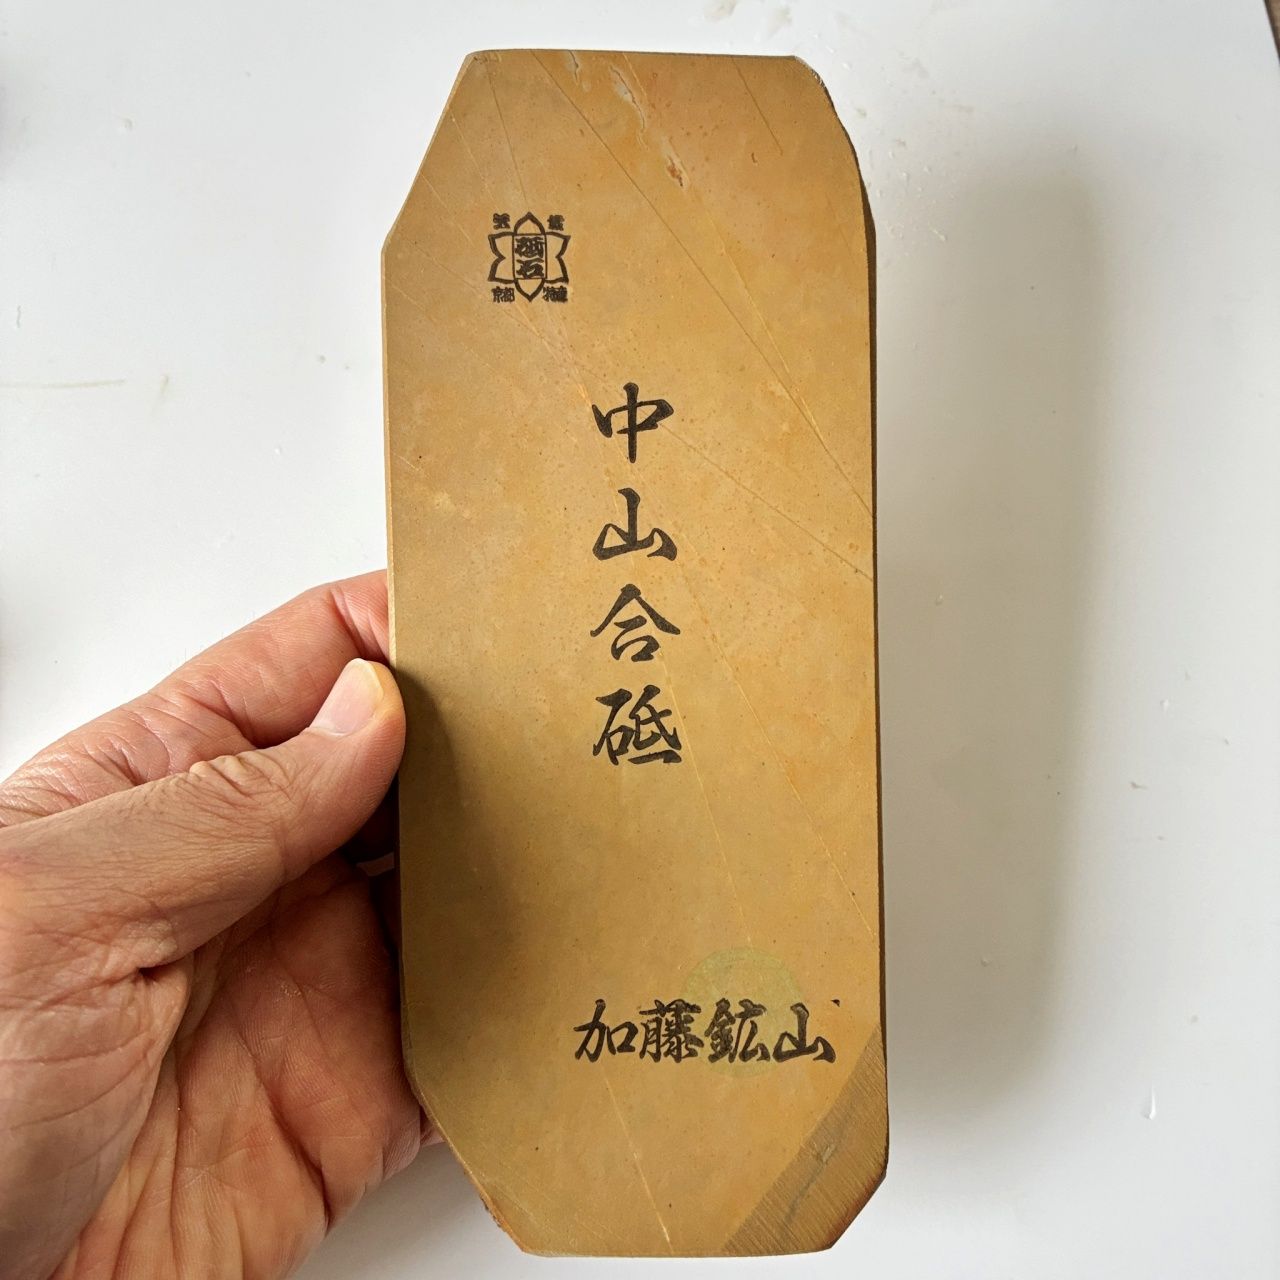 砥石
京都
特産
中山合砥
加藤鉱山